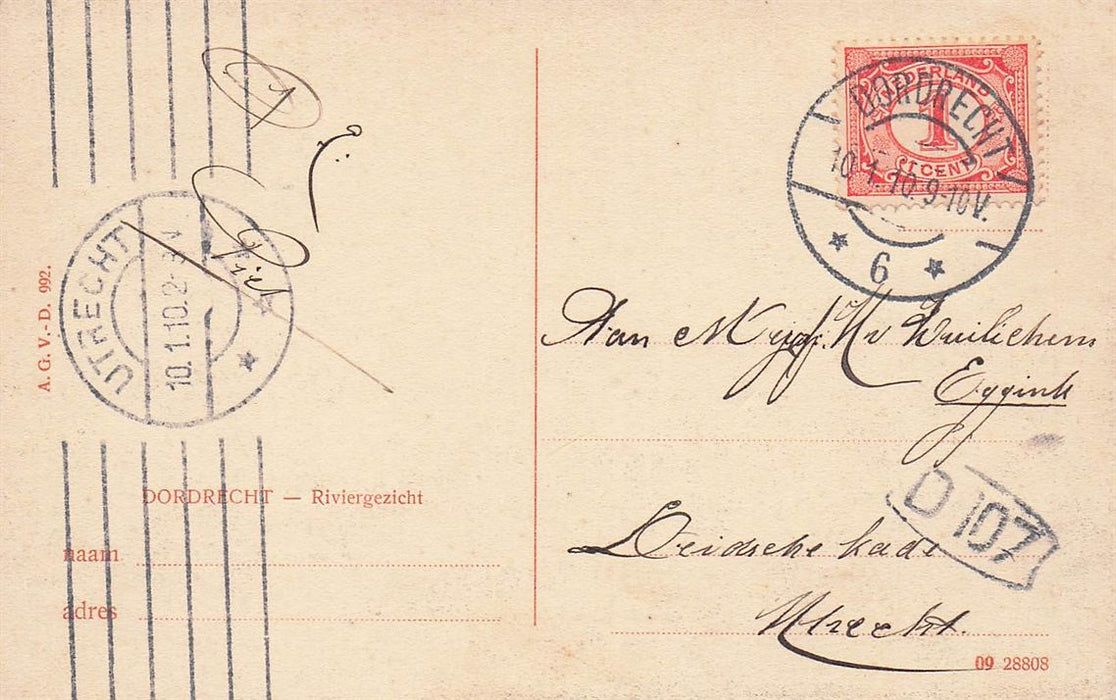 NEDERLAND
1
1 CENT
DORDRECHT
10.1.10.9-10V.
6
UTRECHT
10.1.10.2-3 N
1
Piet
A. G. V.-D. 992.
Aan Mejuf. H v Wuilichem
Eggink
D 107
Leidsche kade
Utrecht.
DORDRECHT — Riviergezicht
naam
adres
09 28808